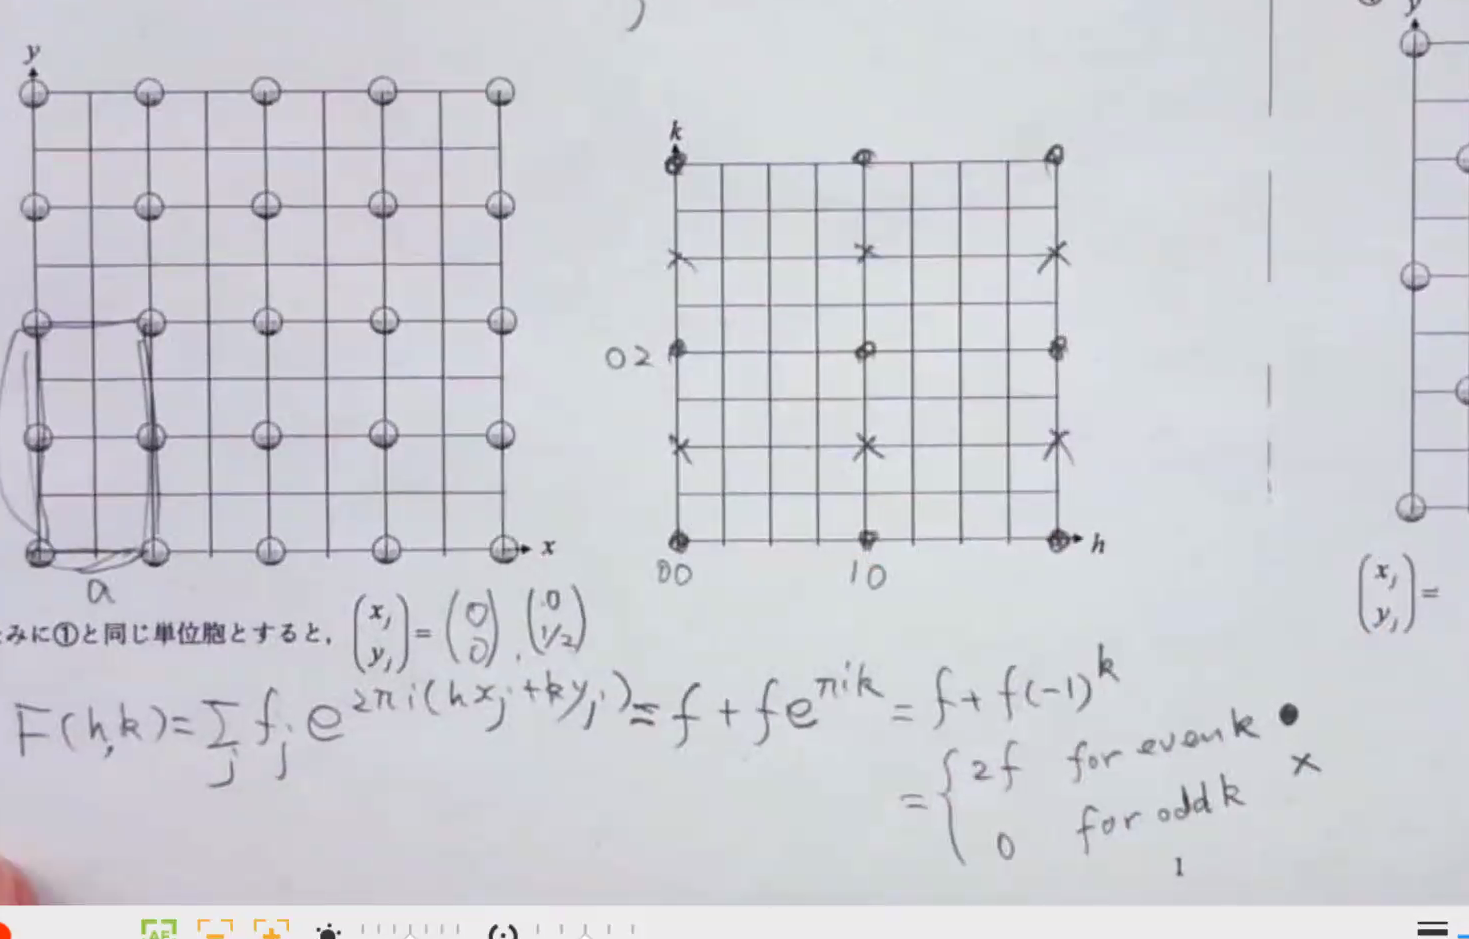 y
y
k
02
x
h
00
10
a
みに①と同じ単位胞とすると, (x_j y_j) = (0 0), (0 1/2)
(x_j y_j) =
F(h,k) = Σ_j f_j e^{2πi(hx_j+ky_j)} = f + f e^{πik} = f + f(-1)^k
= { 2f for even k ●
0 for odd k ×
1
AF